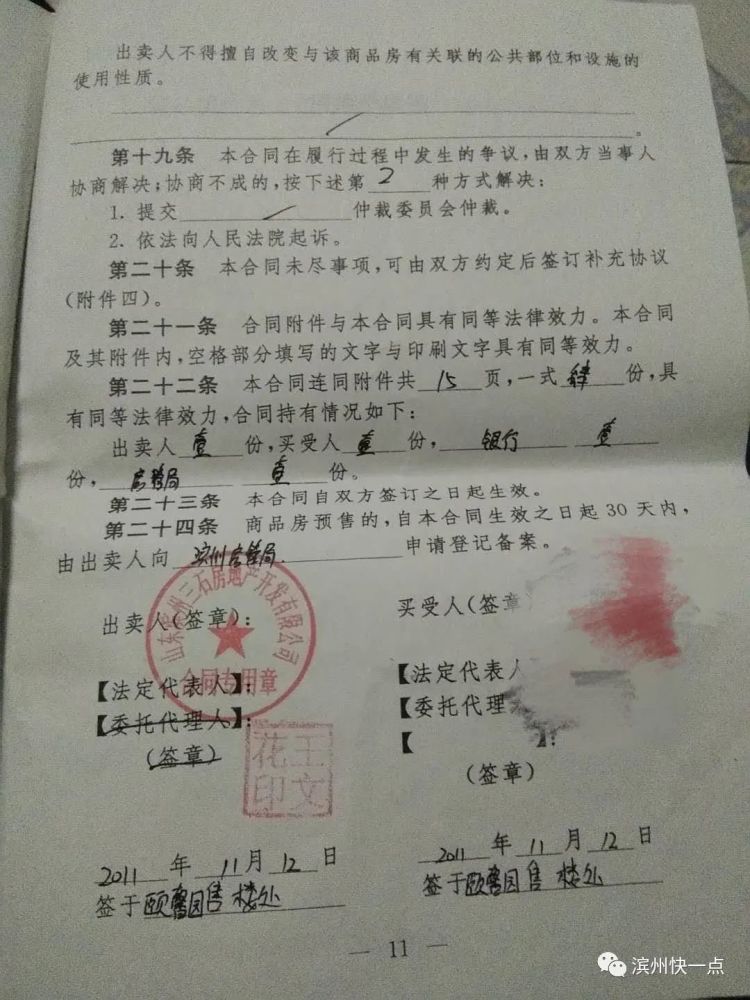 出卖人不得擅自改变与该商品房有关联的公共部位和设施的
使用性质。
。
第十九条 本合同在履行过程中发生的争议,由双方当事人
协商解决;协商不成的,按下述第 2 种方式解决:
1. 提交 / 仲裁委员会仲裁。
2. 依法向人民法院起诉。
第二十条 本合同未尽事项,可由双方约定后签订补充协议
(附件四)。
第二十一条 合同附件与本合同具有同等法律效力。本合同
及其附件内,空格部分填写的文字与印刷文字具有同等效力。
第二十二条 本合同连同附件共 15 页,一式 肆 份,具
有同等法律效力,合同持有情况如下:
出卖人 壹 份,买受人 壹 份, 银行 壹
份, 房管局 壹 份。
第二十三条 本合同自双方签订之日起生效。
第二十四条 商品房预售的,自本合同生效之日起30天内,
由出卖人向 滨州房管局 申请登记备案。
山东滨州三石房地产开发有限公司
合同专用章
出卖人(签章):
【法定代表人】:
【委托代理人】:
(签章)
王文花印
2011 年 11 月 12 日
签于颐馨园售楼处
买受人(签章
【法定代表人
【委托代理
【 】:
(签章)
2011 年 11 月 12 日
签于颐馨园售楼处
— 11 —
滨州快一点